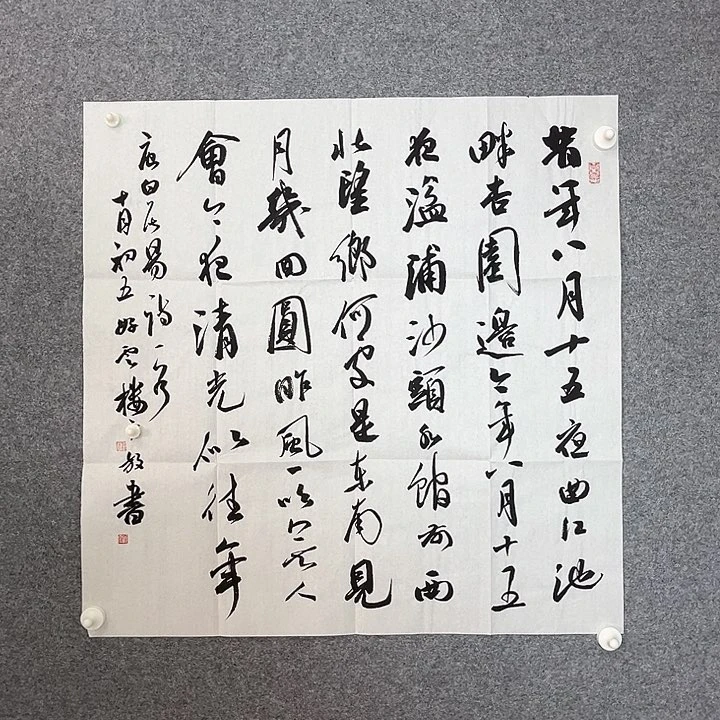 昔年八月十五夜曲江池
畔杏園邊今年八月十五
夜湓浦沙頭水館前西
北望鄉何處是东南見
月幾回圓昨風一吹無人
會今夜清光似往年
唐白居易詩一首
十月初五好雲楼書